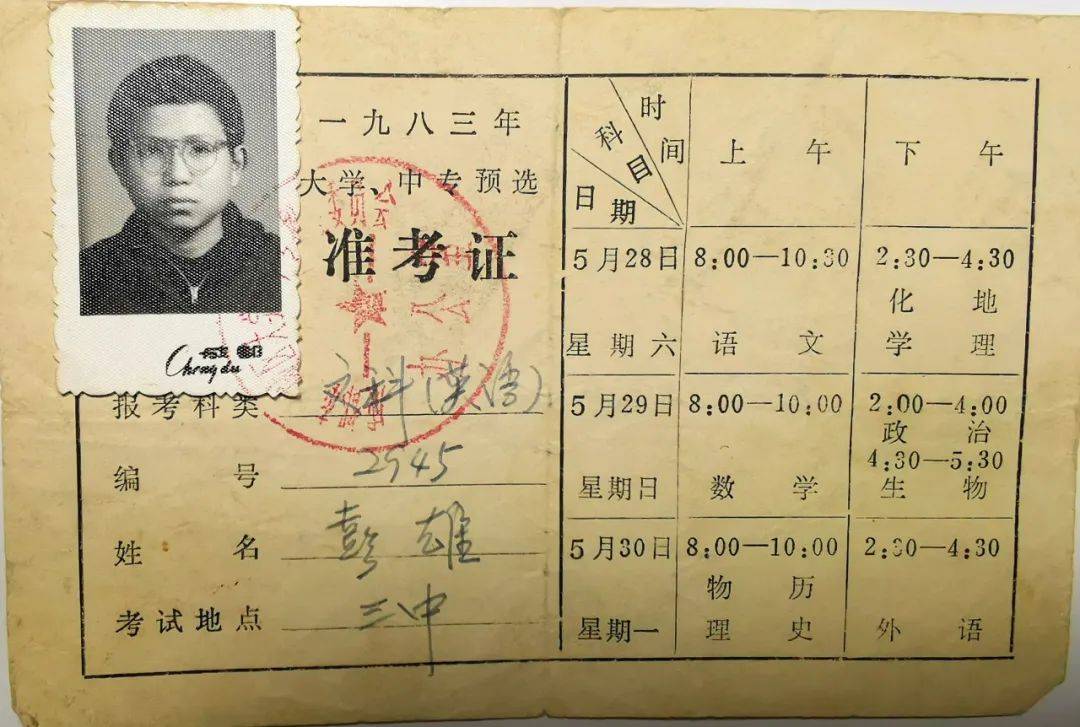 一九八三年
大学、中专预选
准考证
成都
Chengdu
报考科类 文科(英语)
编号 2545
姓名 彭雄
考试地点 三中
时间
科目
日期
上午
下午
5月28日
星期六
8:00—10:30
语文
2:30—4:30
化学 地理
5月29日
星期日
8:00—10:00
数学
2:00—4:00
政治
4:30—5:30
生物
5月30日
星期一
8:00—10:00
物理 历史
2:30—4:30
外语